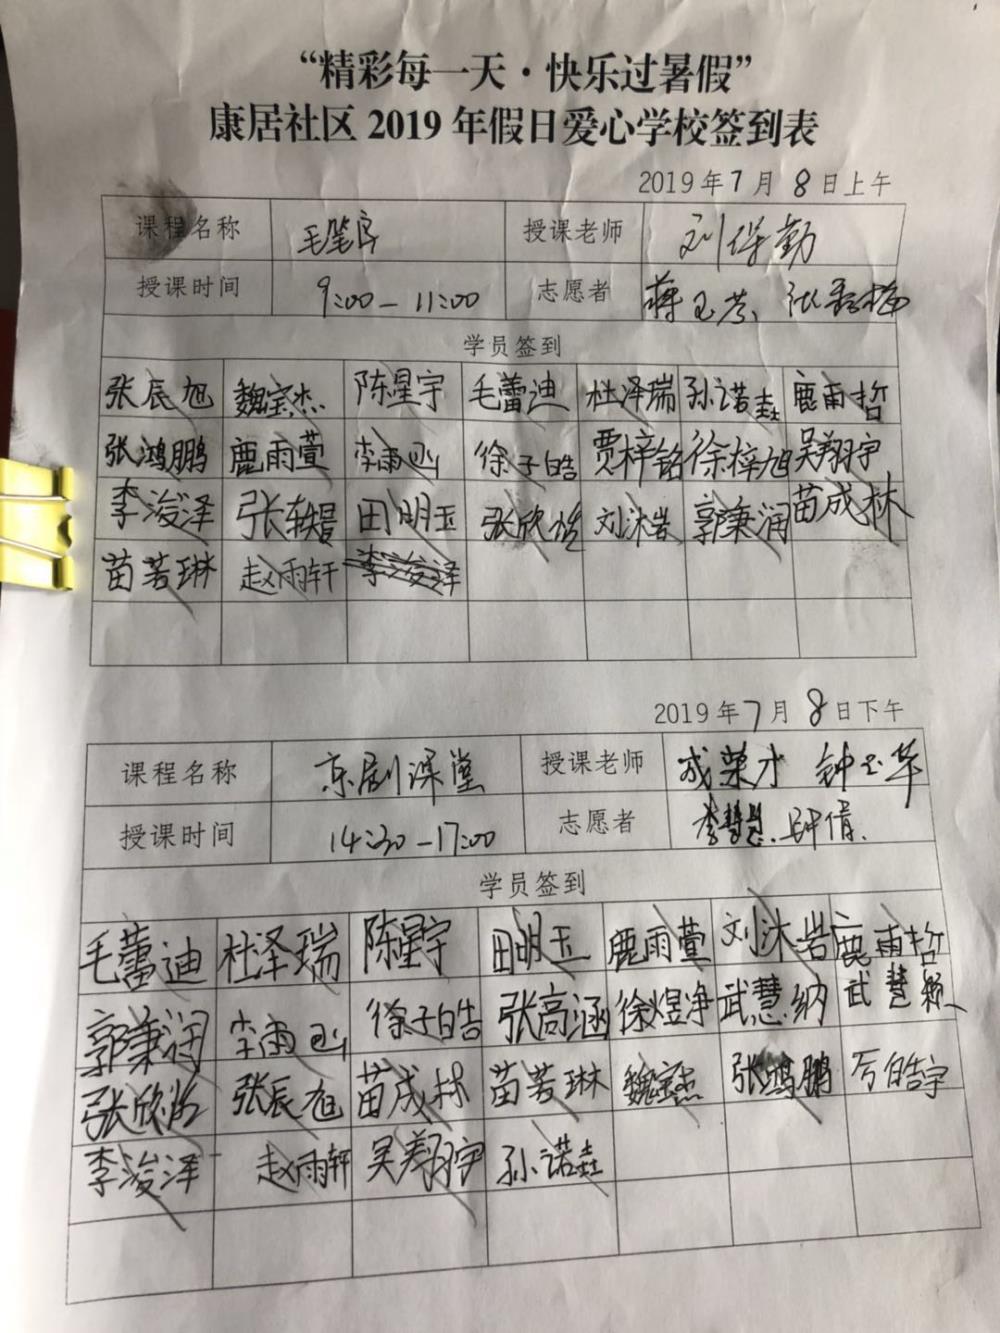 “精彩每一天·快乐过暑假”
康居社区 2019 年假日爱心学校签到表
2019年7月8日上午
课程名称 毛笔字 授课老师 刘保勤
授课时间 9:00-11:00 志愿者 蒋玉芳、张
学员签到
张辰旭 魏宝杰 陈星宇 毛蕾迪 杜泽瑞 孙诺垚 鹿雨哲
张鸿鹏 鹿雨萱 李雨函 徐子皓 贾梓铭 徐梓旭 吴翔宇
李浚泽 张轶晨 田明玉 张欣悦 刘沐岩 郭秉润 苗成林
苗若琳 赵雨轩 李浚泽
2019年7月8日下午
课程名称 京剧课堂 授课老师 成荣才 钟玉华
授课时间 14:30-17:00 志愿者 李慧 钟倩
学员签到
毛蕾迪 杜泽瑞 陈星宇 田明玉 鹿雨萱 刘沐岩 鹿雨哲
郭秉润 李雨函 徐子皓 张高涵 徐煜净 武慧纳 武慧颖
张欣悦 张辰旭 苗成林 苗若琳 魏宝杰 张鸿鹏 万皓宇
李浚泽 赵雨轩 吴翔宇 孙诺垚